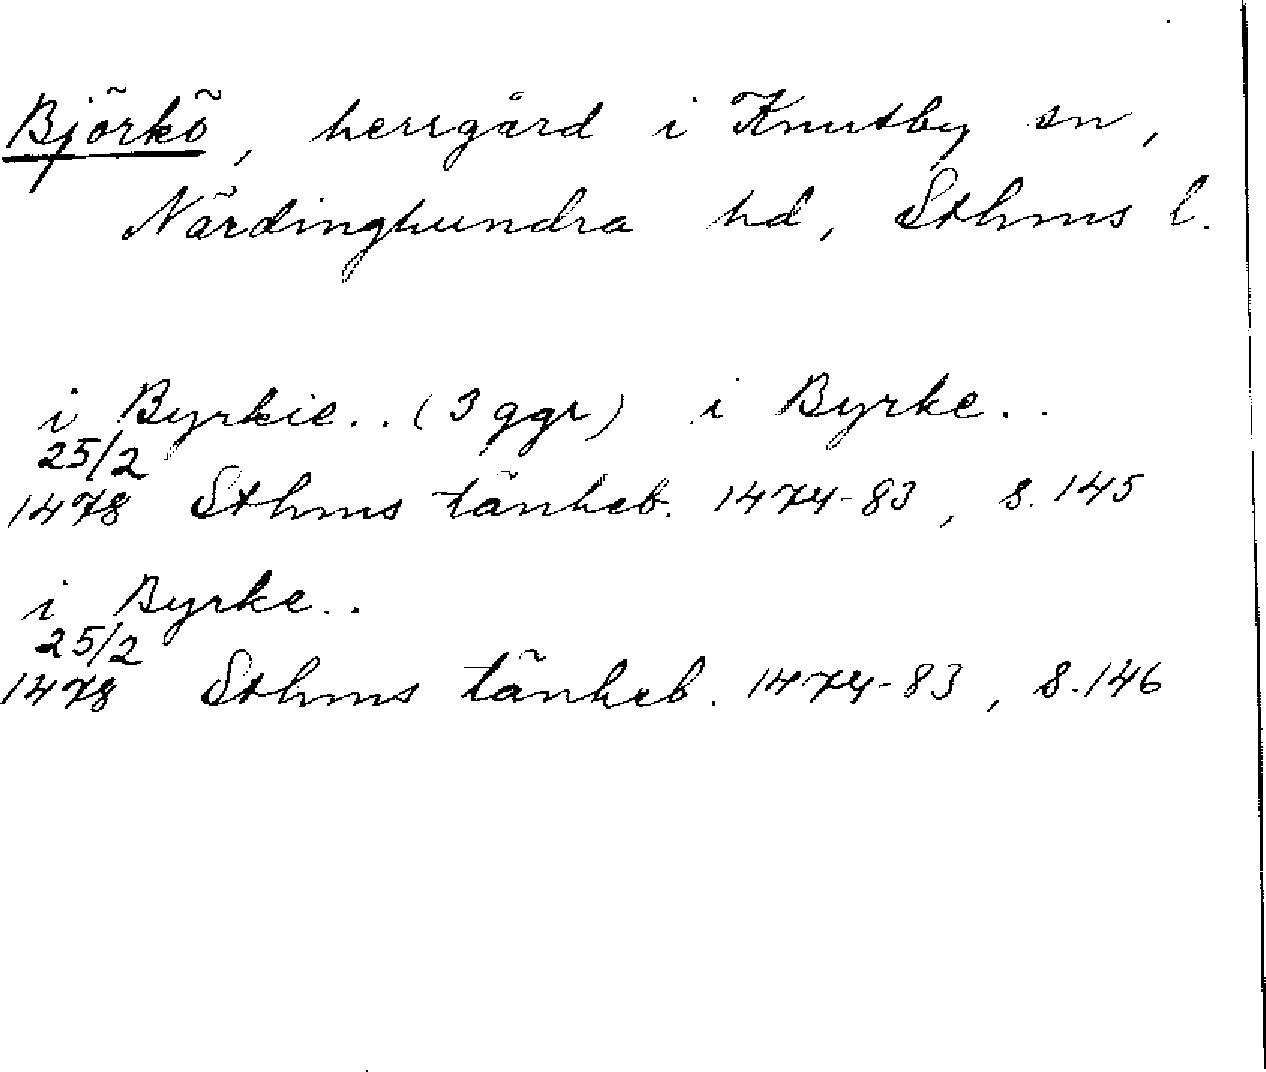 Björkö, herrgård i Knutby sn,
Närdinghundra hd, Sthms l.
i Byrkie..(3 ggr) i Byrke..
25/2
1478 Sthms tänkeb. 1474-83, s. 145
i Byrke..
25/2
1478 Sthms tänkeb. 1474-83, s. 146